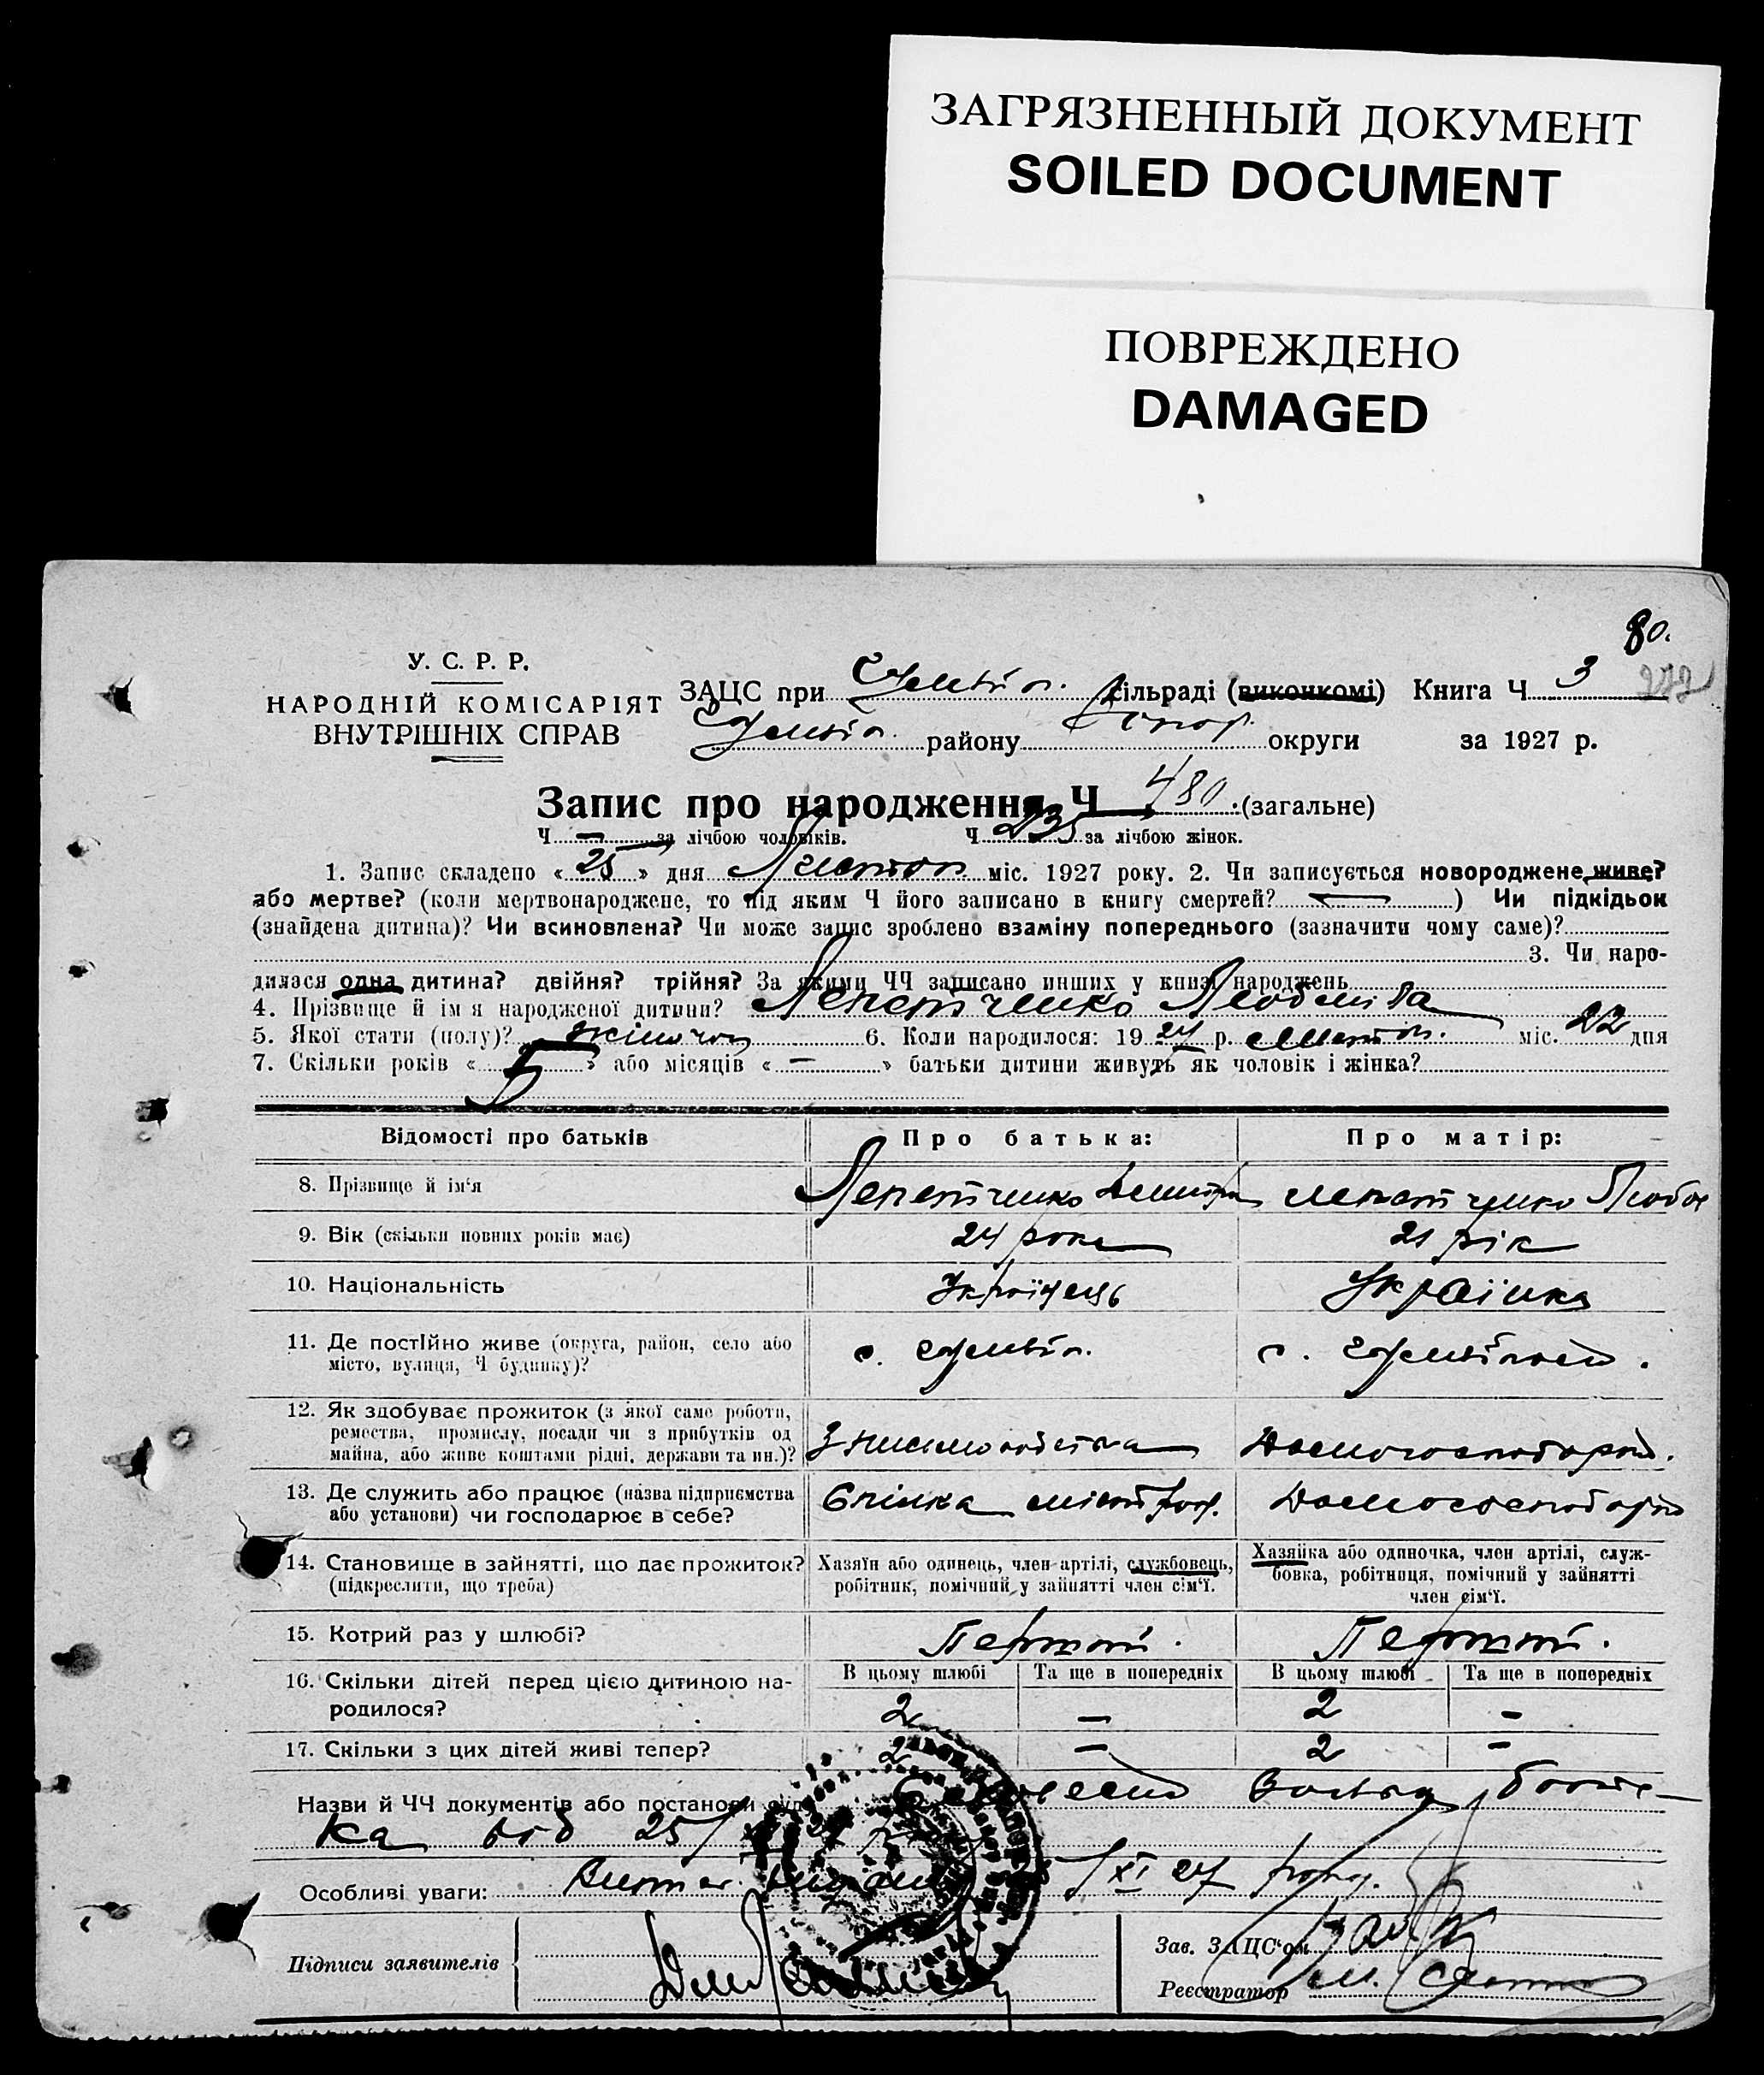 ЗАГРЯЗНЕННЫЙ ДОКУМЕНТ
SOILED DOCUMENT
ПОВРЕЖДЕНО
DAMAGED
80.
У. С. Р. Р.
НАРОДНІЙ КОМІСАРІЯТ
ВНУТРІШНІХ СПРАВ
ЗАЦС при сільраді (виконкомі) Книга Ч 3
району округи за 1927 р.
Запис про народження Ч 480. (загальне)
Ч — за лічбою чоловіків. Ч 235 за лічбою жінок.
1. Запис складено « 25 » дня Листоп. міс. 1927 року. 2. Чи записується новороджене живе?
або мертве? (коли мертвонароджене, то під яким Ч його записано в книгу смертей? — ) Чи підкідьок
(знайдена дитина)? Чи всиновлена? Чи може запис зроблено взаміну попереднього (зазначити чому саме)?
3. Чи наро-
дилася одна дитина? двійня? трійня? За якими ЧЧ записано инших у книзі народжень
4. Прізвище й ім я народженої дитини? Лепетченко
5. Якої стати (полу)? жіночої 6. Коли народилося: 19 27 р. Листоп. міс. 22 дня
7. Скільки років « 5 » або місяців « — » батьки дитини живуть як чоловік і жінка?
Відомості про батьків Про батька: Про матір:
8. Прізвище й ім'я Лепетченко Дмитро Лепетченко Любов
9. Вік (скільки повних років має) 24 роки 21 рік
10. Національність Українець Українка
11. Де постійно живе (округа, район, село або
місто, вулиця, Ч будинку)? с. с.
12. Як здобуває прожиток (з якої саме роботи,
ремества, промислу, посади чи з прибутків од
майна, або живе коштами рідні, держави та ин.)? Домогосподарка.
13. Де служить або працює (назва підприємства
або установи) чи господарює в себе? Спілка Домогосподарка
14. Становище в зайнятті, що дає прожиток?
(підкреслити, що треба)
Хазяїн або одинець, член артілі, службовець,
робітник, помічний у зайнятті член сім'ї.
Хазяйка або одиночка, член артілі, служ-
бовка, робітниця, помічний у зайнятті
член сім'ї.
15. Котрий раз у шлюбі? Перший. Перший.
В цьому шлюбі Та ще в попередніх В цьому шлюбі Та ще в попередніх
16. Скільки дітей перед цією дитиною на-
родилося? 2 — 2 —
17. Скільки з цих дітей живі тепер? 2 — 2 —
Назви й ЧЧ документів або постанови суду
ка від 25/
Особливі уваги: XI 27 року.
Підписи заявителів
Зав. ЗАЦС'ом
Реєстратор